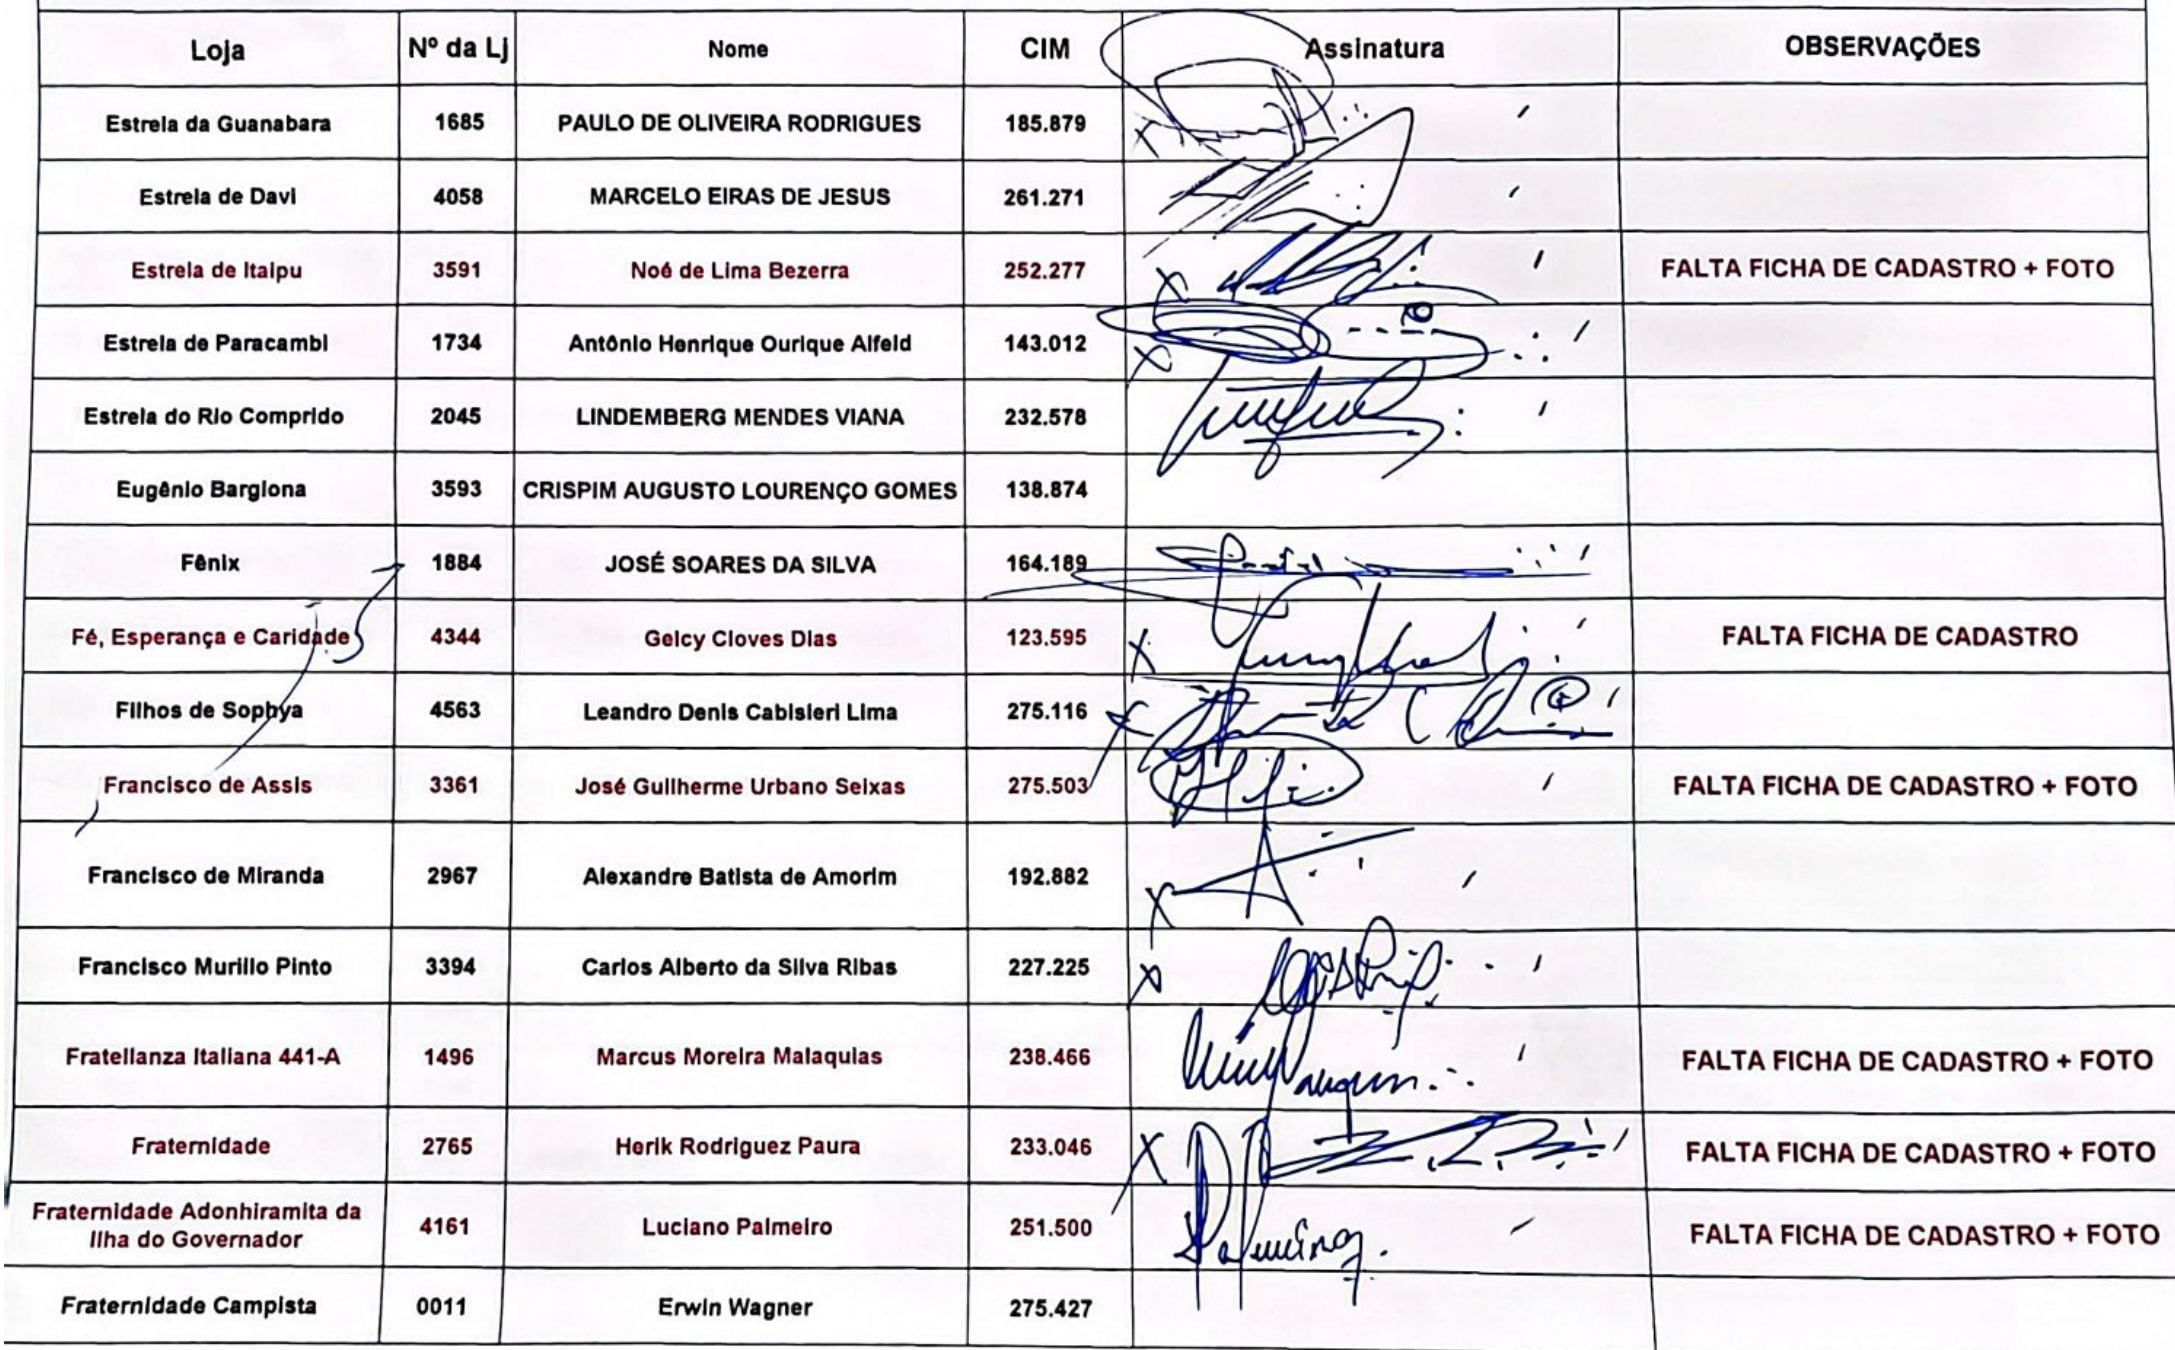 Loja Nº da Lj Nome CIM Assinatura OBSERVAÇÕES
Estrela da Guanabara 1685 PAULO DE OLIVEIRA RODRIGUES 185.879
Estrela de Davi 4058 MARCELO EIRAS DE JESUS 261.271
Estrela de Itaipu 3591 Noé de Lima Bezerra 252.277 FALTA FICHA DE CADASTRO + FOTO
Estrela de Paracambi 1734 Antônio Henrique Ourique Alfeld 143.012
Estrela do Rio Comprido 2045 LINDEMBERG MENDES VIANA 232.578
Eugênio Bargiona 3593 CRISPIM AUGUSTO LOURENÇO GOMES 138.874
Fênix 1884 JOSÉ SOARES DA SILVA 164.189
Fé, Esperança e Caridade 4344 Gelcy Cloves Dias 123.595 FALTA FICHA DE CADASTRO
Filhos de Sophya 4563 Leandro Denis Cabisieri Lima 275.116
Francisco de Assis 3361 José Guilherme Urbano Seixas 275.503 FALTA FICHA DE CADASTRO + FOTO
Francisco de Miranda 2967 Alexandre Batista de Amorim 192.882
Francisco Murillo Pinto 3394 Carlos Alberto da Silva Ribas 227.225
Fratellanza Italiana 441-A 1496 Marcus Moreira Malaquias 238.466 FALTA FICHA DE CADASTRO + FOTO
Fraternidade 2765 Herik Rodriguez Paura 233.046 FALTA FICHA DE CADASTRO + FOTO
Fraternidade Adonhiramita da
Ilha do Governador 4161 Luciano Palmeiro 251.500 FALTA FICHA DE CADASTRO + FOTO
Fraternidade Campista 0011 Erwin Wagner 275.427